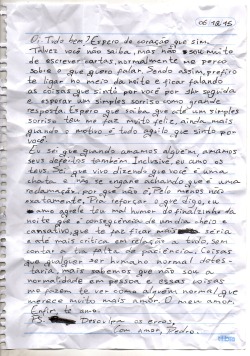 06/12/15
Oi. Tudo bem? Espero de coração que sim.
Talvez você não saiba, mas não sou muito
de escrever cartas, normalmente me perco
sobre o que quero falar. Sendo assim, prefiro
te ligar no meio da noite e ficar falando
as coisas que sinto por você por seguida
e esperar um simples sorriso como grande
resposta. Espero que saiba que até um simples
sorriso teu me faz muito feliz, ainda mais
quando o motivo é tudo aquilo que sinto por
você.
Eu sei que quando amamos alguém, amamos
seus defeitos também. Inclusive, eu amo os
teus. Sei que vivo dizendo que você é uma
chata e não se engane achando que é uma
reclamação, por que não é. Pelo menos não
exatamente. Pra reforçar o que digo, eu
amo aquele teu mal humor de finalzinho da
noite que é consequência de um dia cheio e
cansativo, que te faz ficar séria
e até mais critica em relação a tudo, sem
contar a falta de paciência. Coisas
que qualquer ser humano normal detes-
taria, mais sabemos que não sou a
normalidade em pessoa e essas coisas
me fazem te ver como alguém normal, que
merece muito mais amor. O meu amor.
Enfim, te amo.
PS. Desculpa os erros,
Com amor, Pedro.